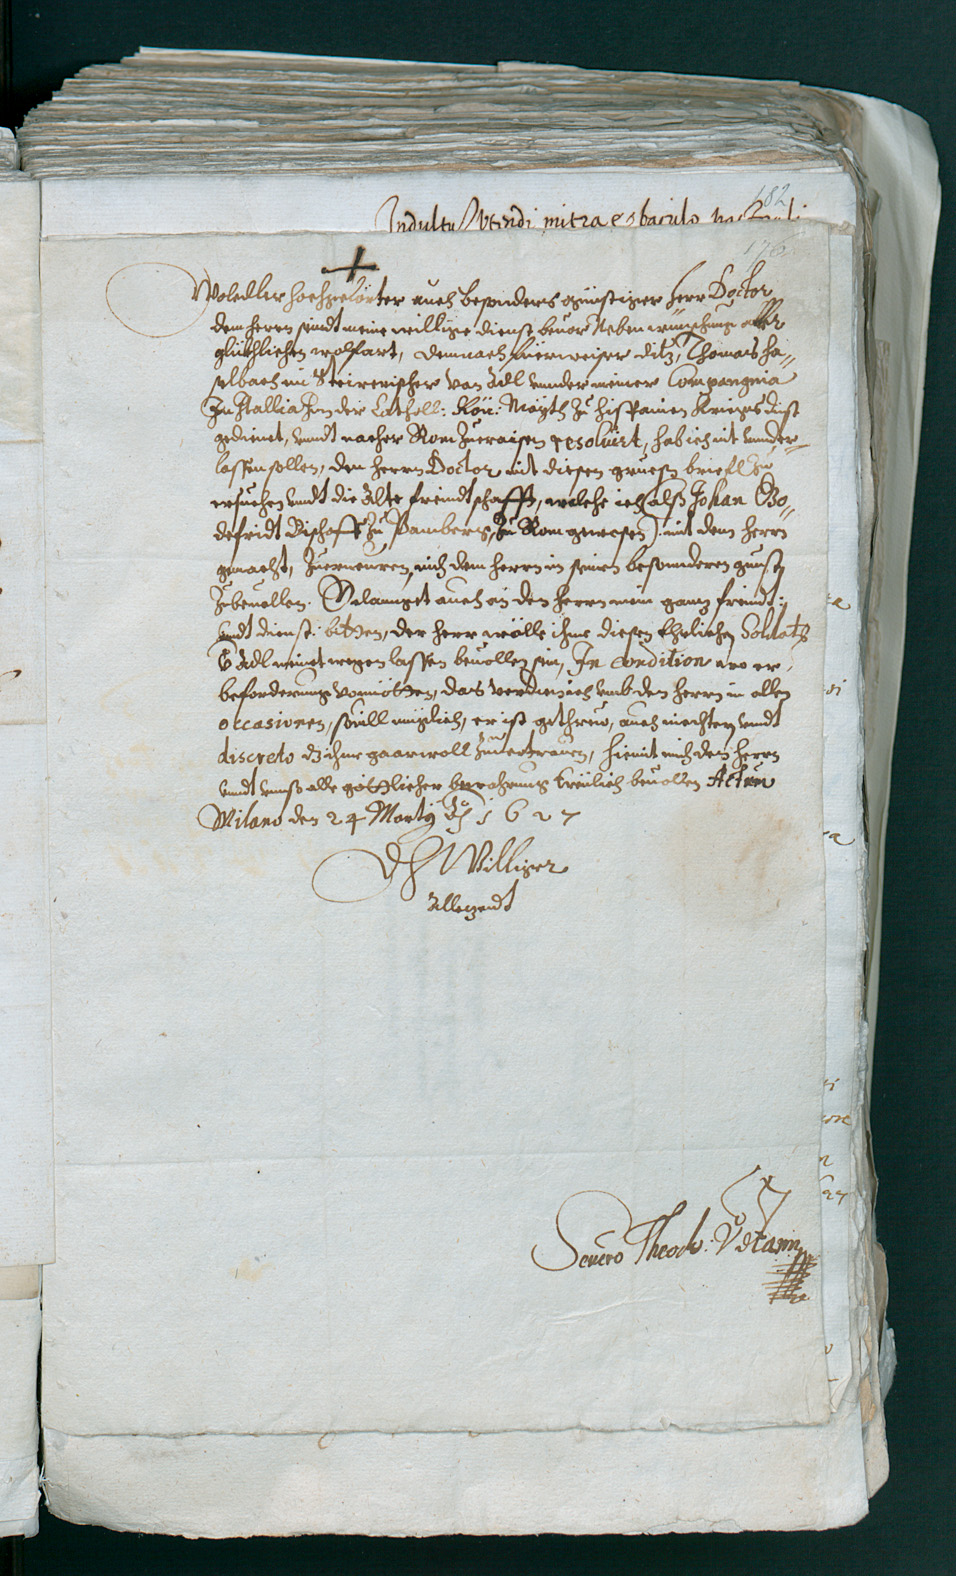 182
Indultu Utendi mitra et baculo
176
Woledler hochgelörter auch besonders günstiger herr Doctor
dem herrn seindt meine willige dienst beuor Neben wünschung aller
glükhlichen wolfart, demnach fürweiser ditz, Thomas ha„
selbach ein Steirerischer von Adl vnnder meiner Compangnia
In Itallia der Cathol: Kön: Maÿth zu hispanien Kriegs dinst
gedienet, vnndt nacher Rom Zueraisen resoluirt, hab ich nit vnnder„
lassen sollen, den herrn Doctor mit diesen gruess briefl zu
ersuchen vnndt die Alte freindtschafft, welche ich alss Johan Go„
defridt Bischoff Zu Pamberg, Zu Rom gewesen) mit dem herrn
gemacht, Zuerneuren, mich dem herrn in seinen besonderen gunst
Zubeuellen. Gelanget auch an den herrn mein gantz freindt:
vndt dienst: bitten, der herr wölle ihme diesen Ehrlichen Soldats
v Adl meinet wegen lassen beuollen sein, In condition wo er
beforderung vonnötten, das verdien ich vmb den herrn in allen
occasionen, souill müglich, er ist gethrew, auch nüechtern vndt
discreto dz ihme gaar woll Zuuertrauen, hiemit mich dem herrn
vndt vnnss alle göttlicher bewahrung treülich beuollen Actum
Milano den 24 Martÿ Aº 1627
DH Williger
Allezeidt
Seuero Theodo: